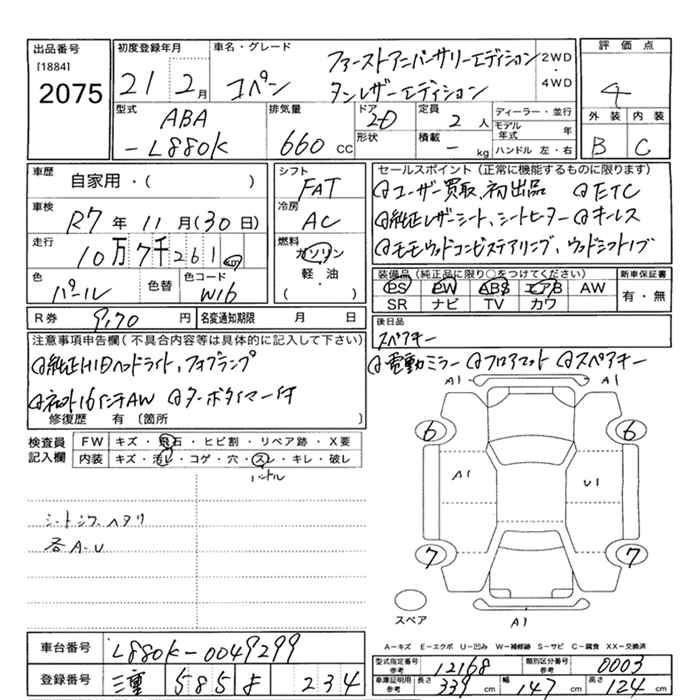 出品番号
[1884]
2075
初度登録年月
21 2月
車名・グレード
コペン
ファーストアニバーサリーエディション
タンレザーエディション
2WD
4WD
評価点
4
外装 内装
B C
型式
ABA
-L880K
排気量
660 CC
ドア
2D
形状
定員
2人
積載
- kg
ディーラー・並行
モデル年式 年
ハンドル 左・右
車歴
自家用・( )
車検
R7年11月(30日)
走行
10万7千261km
色
パール
色替
色コード
W16
シフト
FAT
冷房
AC
燃料
ガソリン
軽・油
( )
セールスポイント(正常に機能するものに限ります)
ユーザー買取、初出品 ETC
純正レザーシート、シートヒーター キーレス
モモウッドコンビステアリング、ウッドシフトノブ
装備品(純正品に限り○をつけてください)
PS PW ABS エアB AW
SR ナビ TV カワ
新車保証書
有・無
R券 9,170円
名変通知期限 月 日
後日品
スペアキー
注意事項申告欄(不具合内容等は具体的に記入して下さい)
純正HIDヘッドライト、フォグランプ
16インチAW ターボタイマー付
修復歴 有 〔箇所 〕
電動ミラー フロアマット スペアキー
検査員記入欄
FW キズ・飛石・ヒビ割・リペア跡・X要
内装 キズ・汚レ・コゲ・穴・スレ・キレ・破レ
ハンドル
シートシワ、ヘタリ
各A・U
A1 A1
6 6
A1 U1
7 7
A1
スペア
A-キズ E-エクボ U-凹み W-補修跡 S-サビ C-腐食 XX-交換済
車台番号 L880K-0049299
登録番号 三重 585 234
型式指定番号 参考 12168
類別区分番号 参考 0003
車庫証明用 参考 長さ 339cm 幅 147cm 高さ 124cm